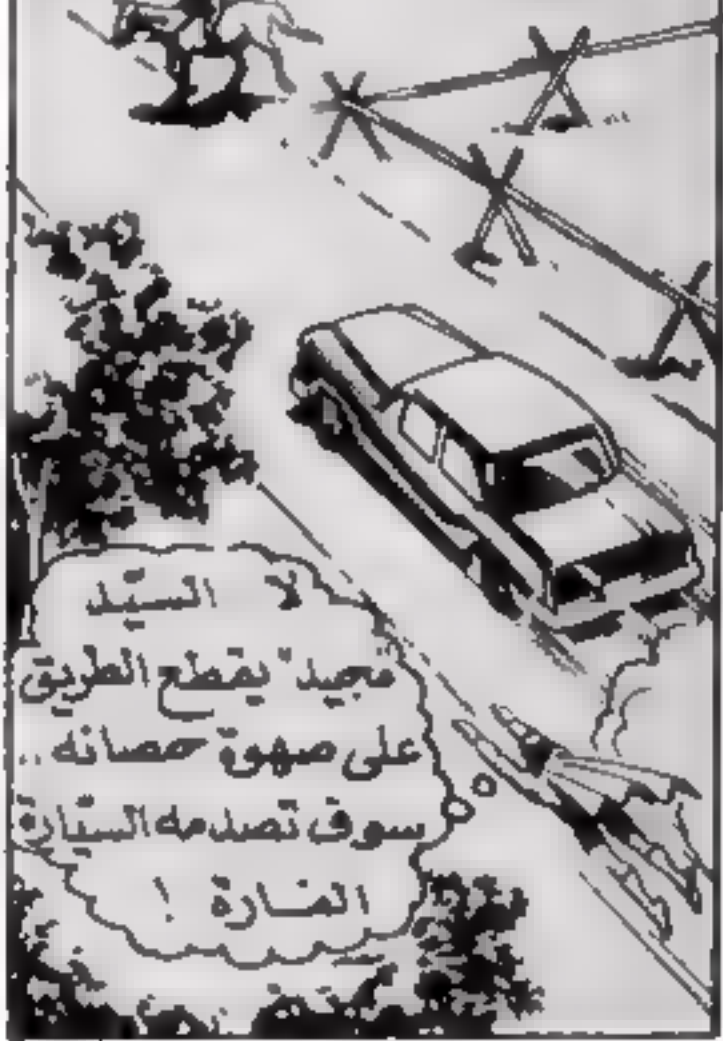 لا السيّد
مجيد" يقطع الطريق
على صهوة حصانه ..
سوف تصدمه السيّارة
المارة !